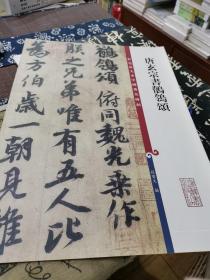 唐玄宗書鶺鴒頌
鶺鴒頌 俯同魏光乘作
朕之兄弟唯有五人比
為方伯歲一朝見雖